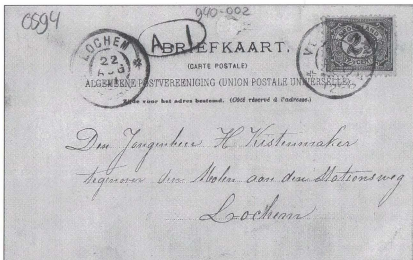 0594
940-002
A 1
LOCHEM
22
AUG
BRIEFKAART.
(CARTE POSTALE)
ALGEMEENE POSTVEREENIGING (UNION POSTALE UNIVERSELLE)
Zijde voor het adres bestemd. (Côté réservé à l'adresse.)
Den Jongenheer H Kistenmaker
tegenover den Molen aan den Stationsweg
Lochem